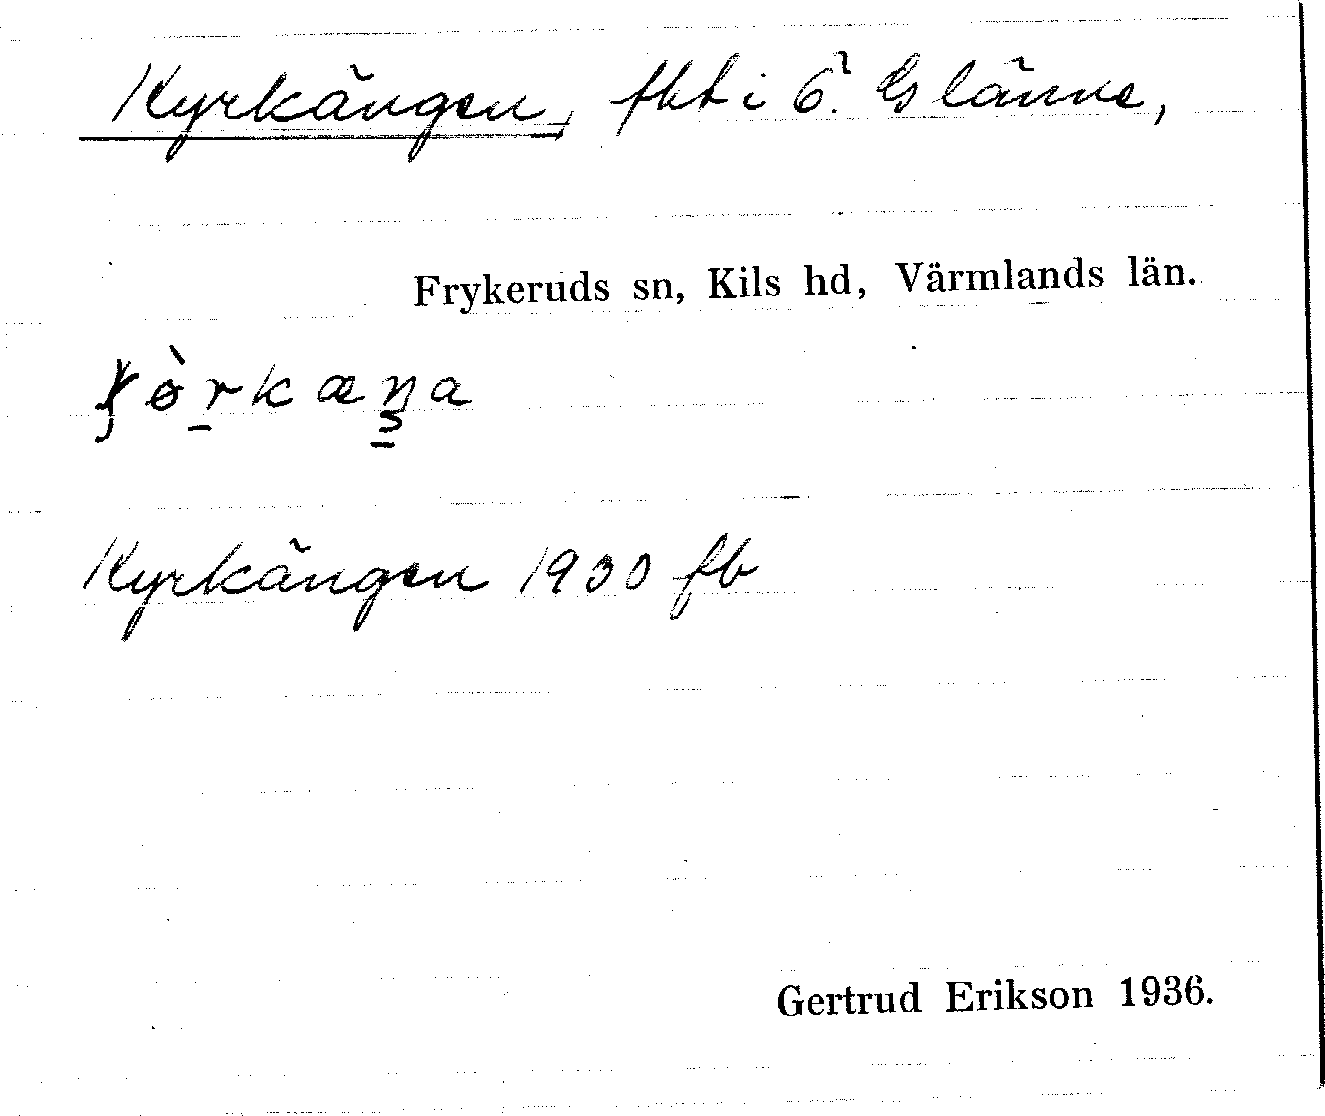 Kyrkängen, fkt i 6? Glänne,
Frykeruds sn, Kils hd, Värmlands län.
Kyrkängen 1930 fb
Gertrud Erikson 1936.